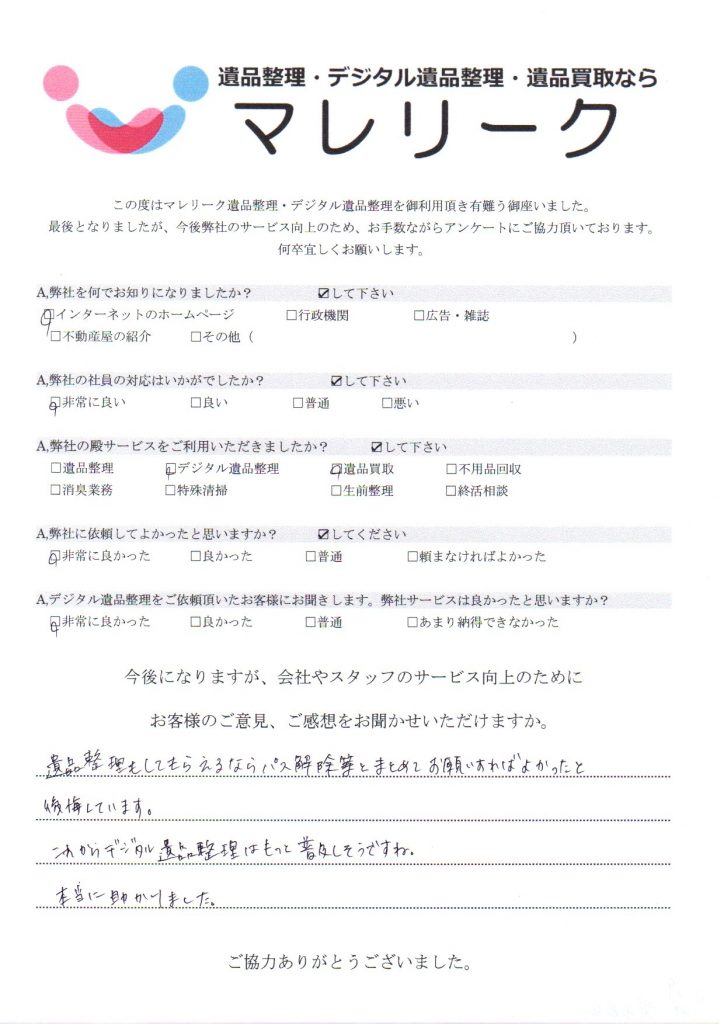 遺品整理・デジタル遺品整理・遺品買取なら
マレリーク
この度はマレリーク遺品整理・デジタル遺品整理を御利用頂き有難う御座いました。
最後となりましたが、今後弊社のサービス向上のため、お手数ながらアンケートにご協力頂いております。
何卒宜しくお願いします。
A,弊社を何でお知りになりましたか？ ☑して下さい
□インターネットのホームページ □行政機関 □広告・雑誌
□不動産屋の紹介 □その他（ ）
A,弊社の社員の対応はいかがでしたか？ ☑して下さい
□非常に良い □良い □普通 □悪い
A,弊社の殿サービスをご利用いただきましたか？ ☑して下さい
□遺品整理 □デジタル遺品整理 □遺品買取 □不用品回収
□消臭業務 □特殊清掃 □生前整理 □終活相談
A,弊社に依頼してよかったと思いますか？ ☑してください
□非常に良かった □良かった □普通 □頼まなければよかった
A,デジタル遺品整理をご依頼頂いたお客様にお聞きします。弊社サービスは良かったと思いますか？
□非常に良かった □良かった □普通 □あまり納得できなかった
今後になりますが、会社やスタッフのサービス向上のために
お客様のご意見、ご感想をお聞かせいただけますか。
遺品整理もしてもらえるならパス解除等とまとめてお願いすればよかったと
後悔しています。
これからデジタル遺品整理はもっと普及しそうですね。
本当に助かりました。
ご協力ありがとうございました。